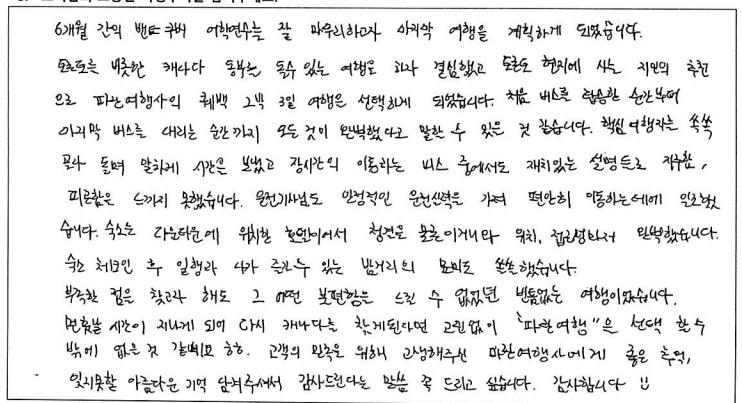 6개월 간의 밴쿠버 어학연수를 잘 마무리하고자 마지막 여행을 계획하게 되었습니다.
토론토를 비롯한 캐나다 동부를 돌 수 있는 여행을 하자 결심했고 토론토 현지에 사는 지인의 추천
으로 파란여행사의 퀘백 2박 3일 여행을 선택하게 되었습니다. 처음 버스를 탑승한 순간부터
마지막 버스를 내리는 순간까지 모든 것이 완벽했다고 말할 수 있을 것 같습니다. 핵심 여행지를 쏙쏙
골라 돌며 알차게 시간을 보냈고 장시간의 이동하는 버스 중에서도 재치있는 설명들로 지루함,
피로함을 느끼지 못했습니다. 운전기사님도 안정적인 운전실력을 가져 편안히 이동하는데에 완벽했
습니다. 숙소는 다운타운에 위치한 호텔이어서 청결은 물론이거니와 위치, 접근성까지 완벽했습니다.
숙소 체크인 후 일행과 나가 즐길 수 있는 밤거리의 묘미도 쏠쏠했습니다.
부족한 점을 찾고자 해도 그 어떤 불편함을 느낄 수 없었던 빈틈없는 여행이었습니다.
먼훗날 시간이 지나게 되어 다시 캐나다를 찾게된다면 고민없이 "파란여행"을 선택 할 수
밖에 없을 것 같네요 ㅎㅎ. 고객의 만족을 위해 고생해주신 파란여행사에게 좋은 추억,
잊지못할 아름다운 기억 남겨주셔서 감사드린다는 말씀 꼭 드리고 싶습니다. 감사합니다 !!